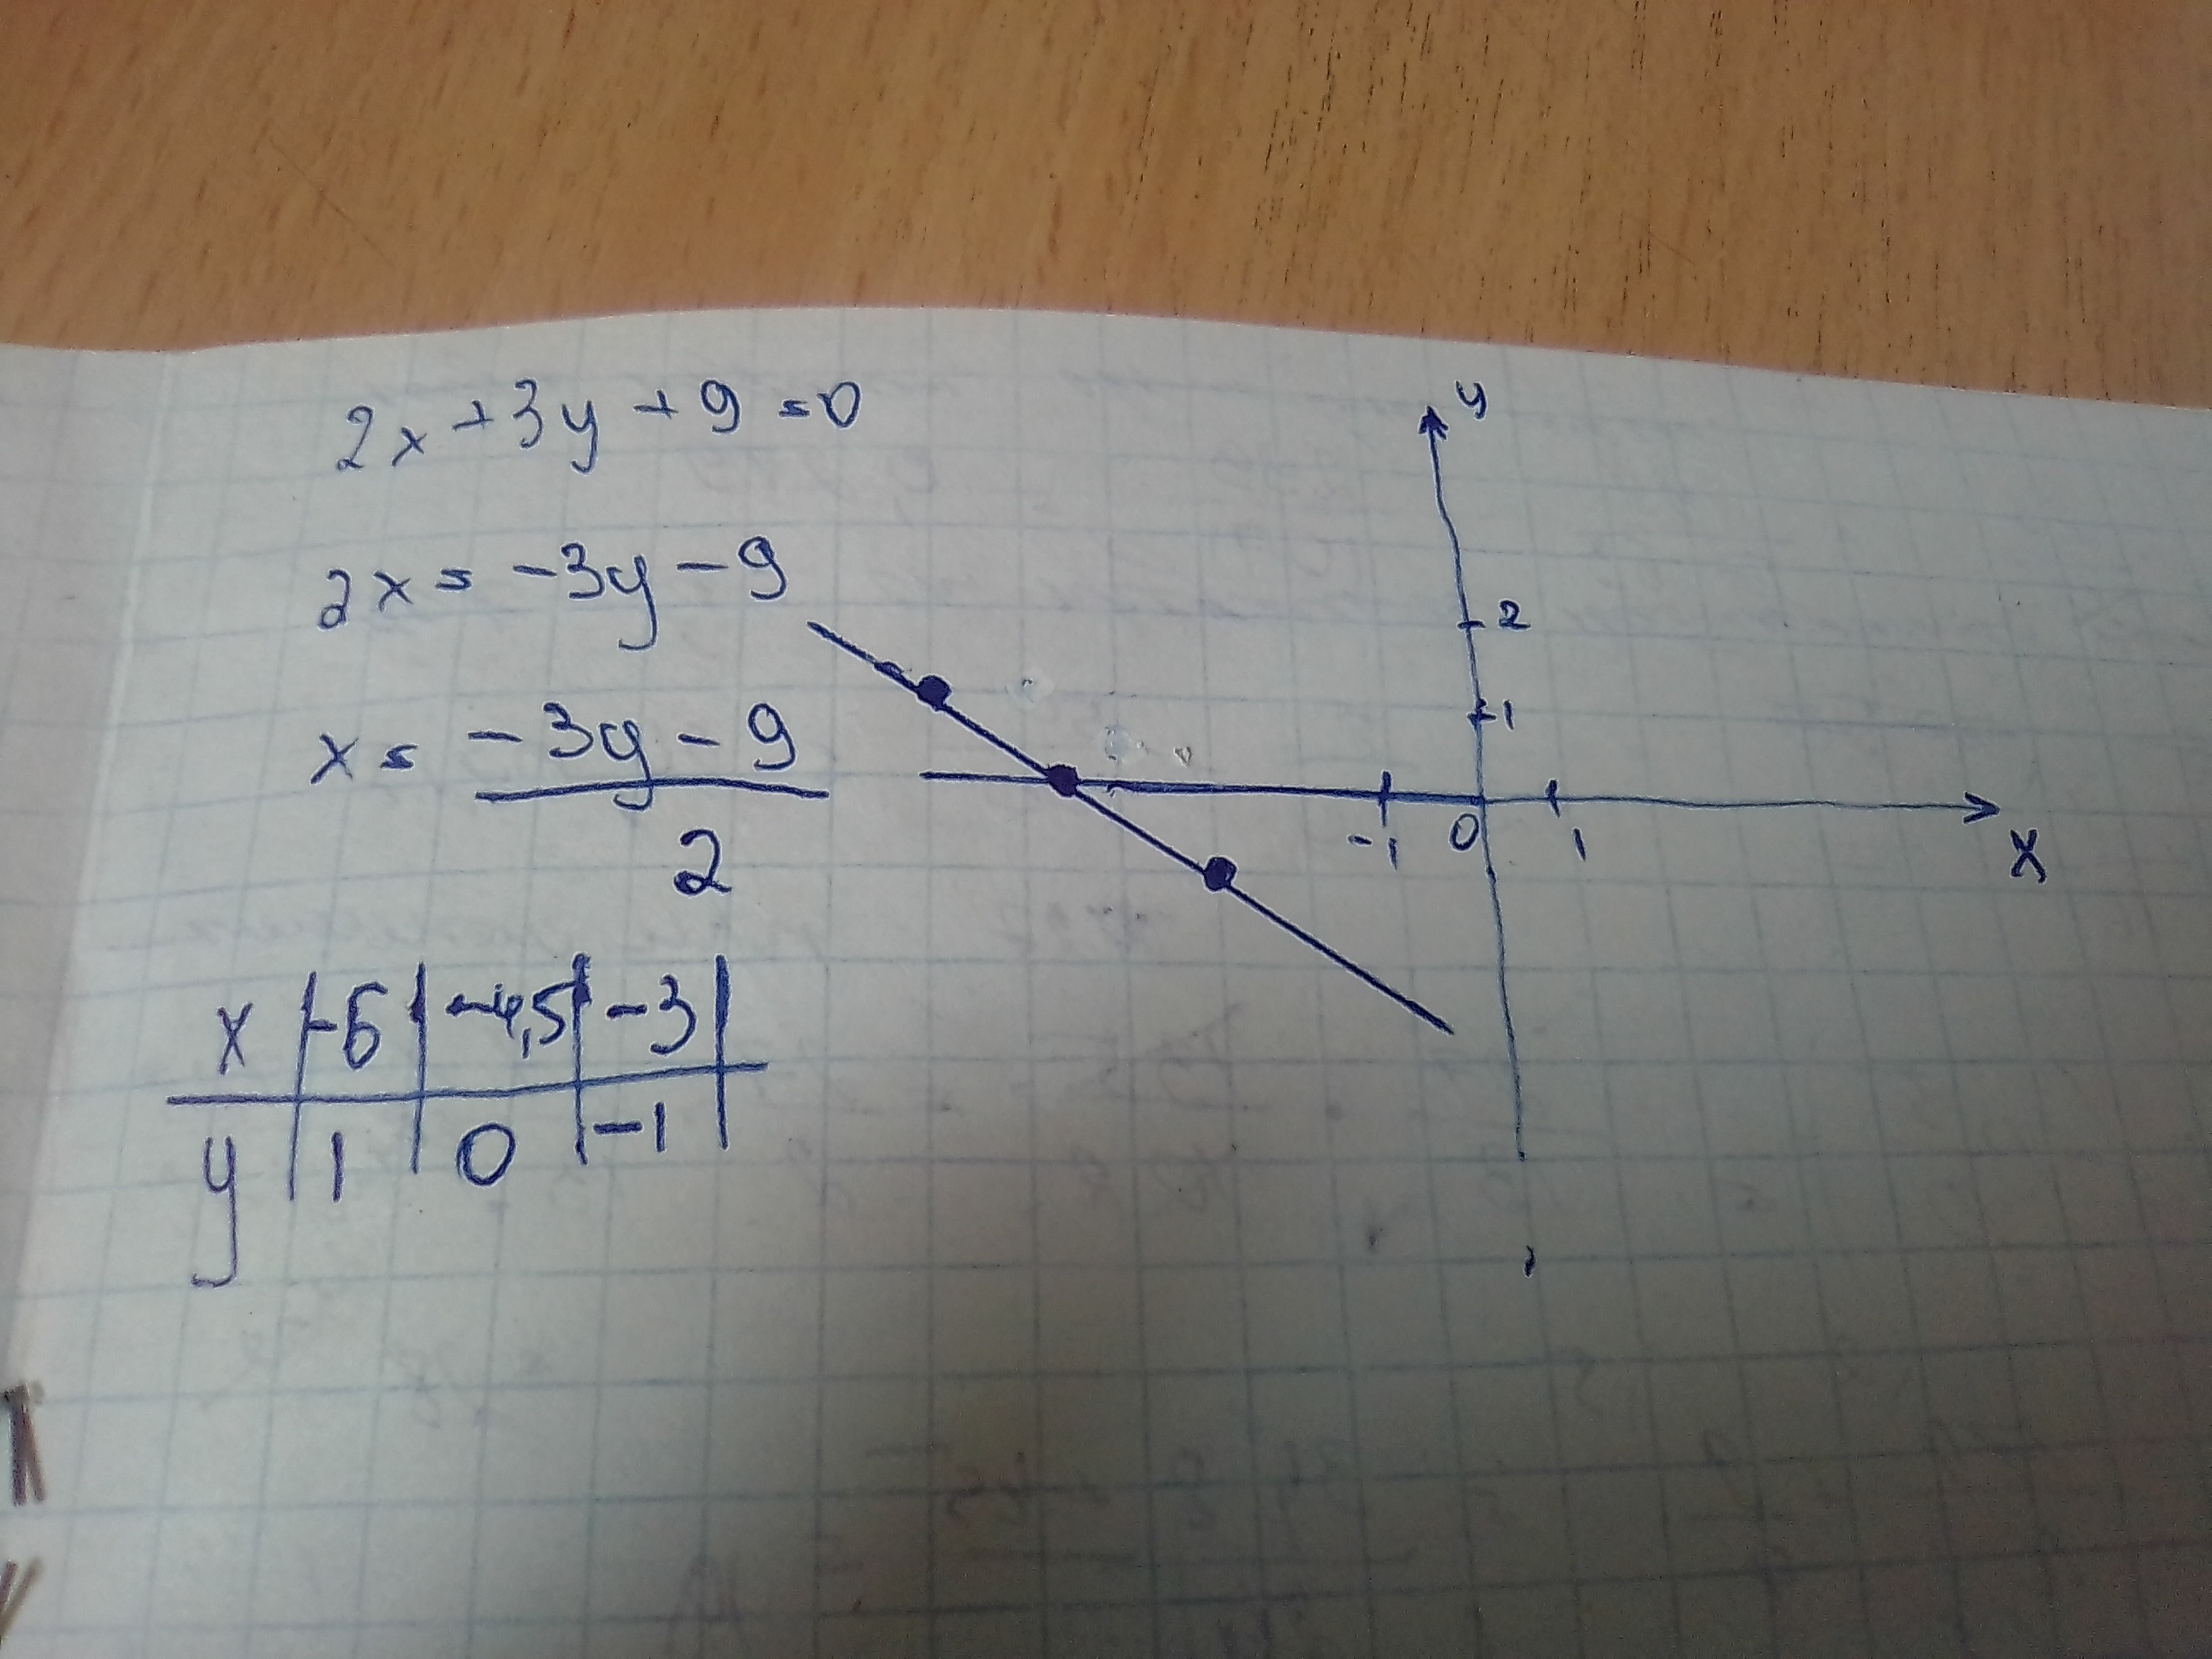 2x+3y+9=0
2x=-3y-9
x=-3y-9
2
x | -6 | -4,5 | -3 |
y | 1 | 0 | -1 |
y
2
1
-1 0 1
x